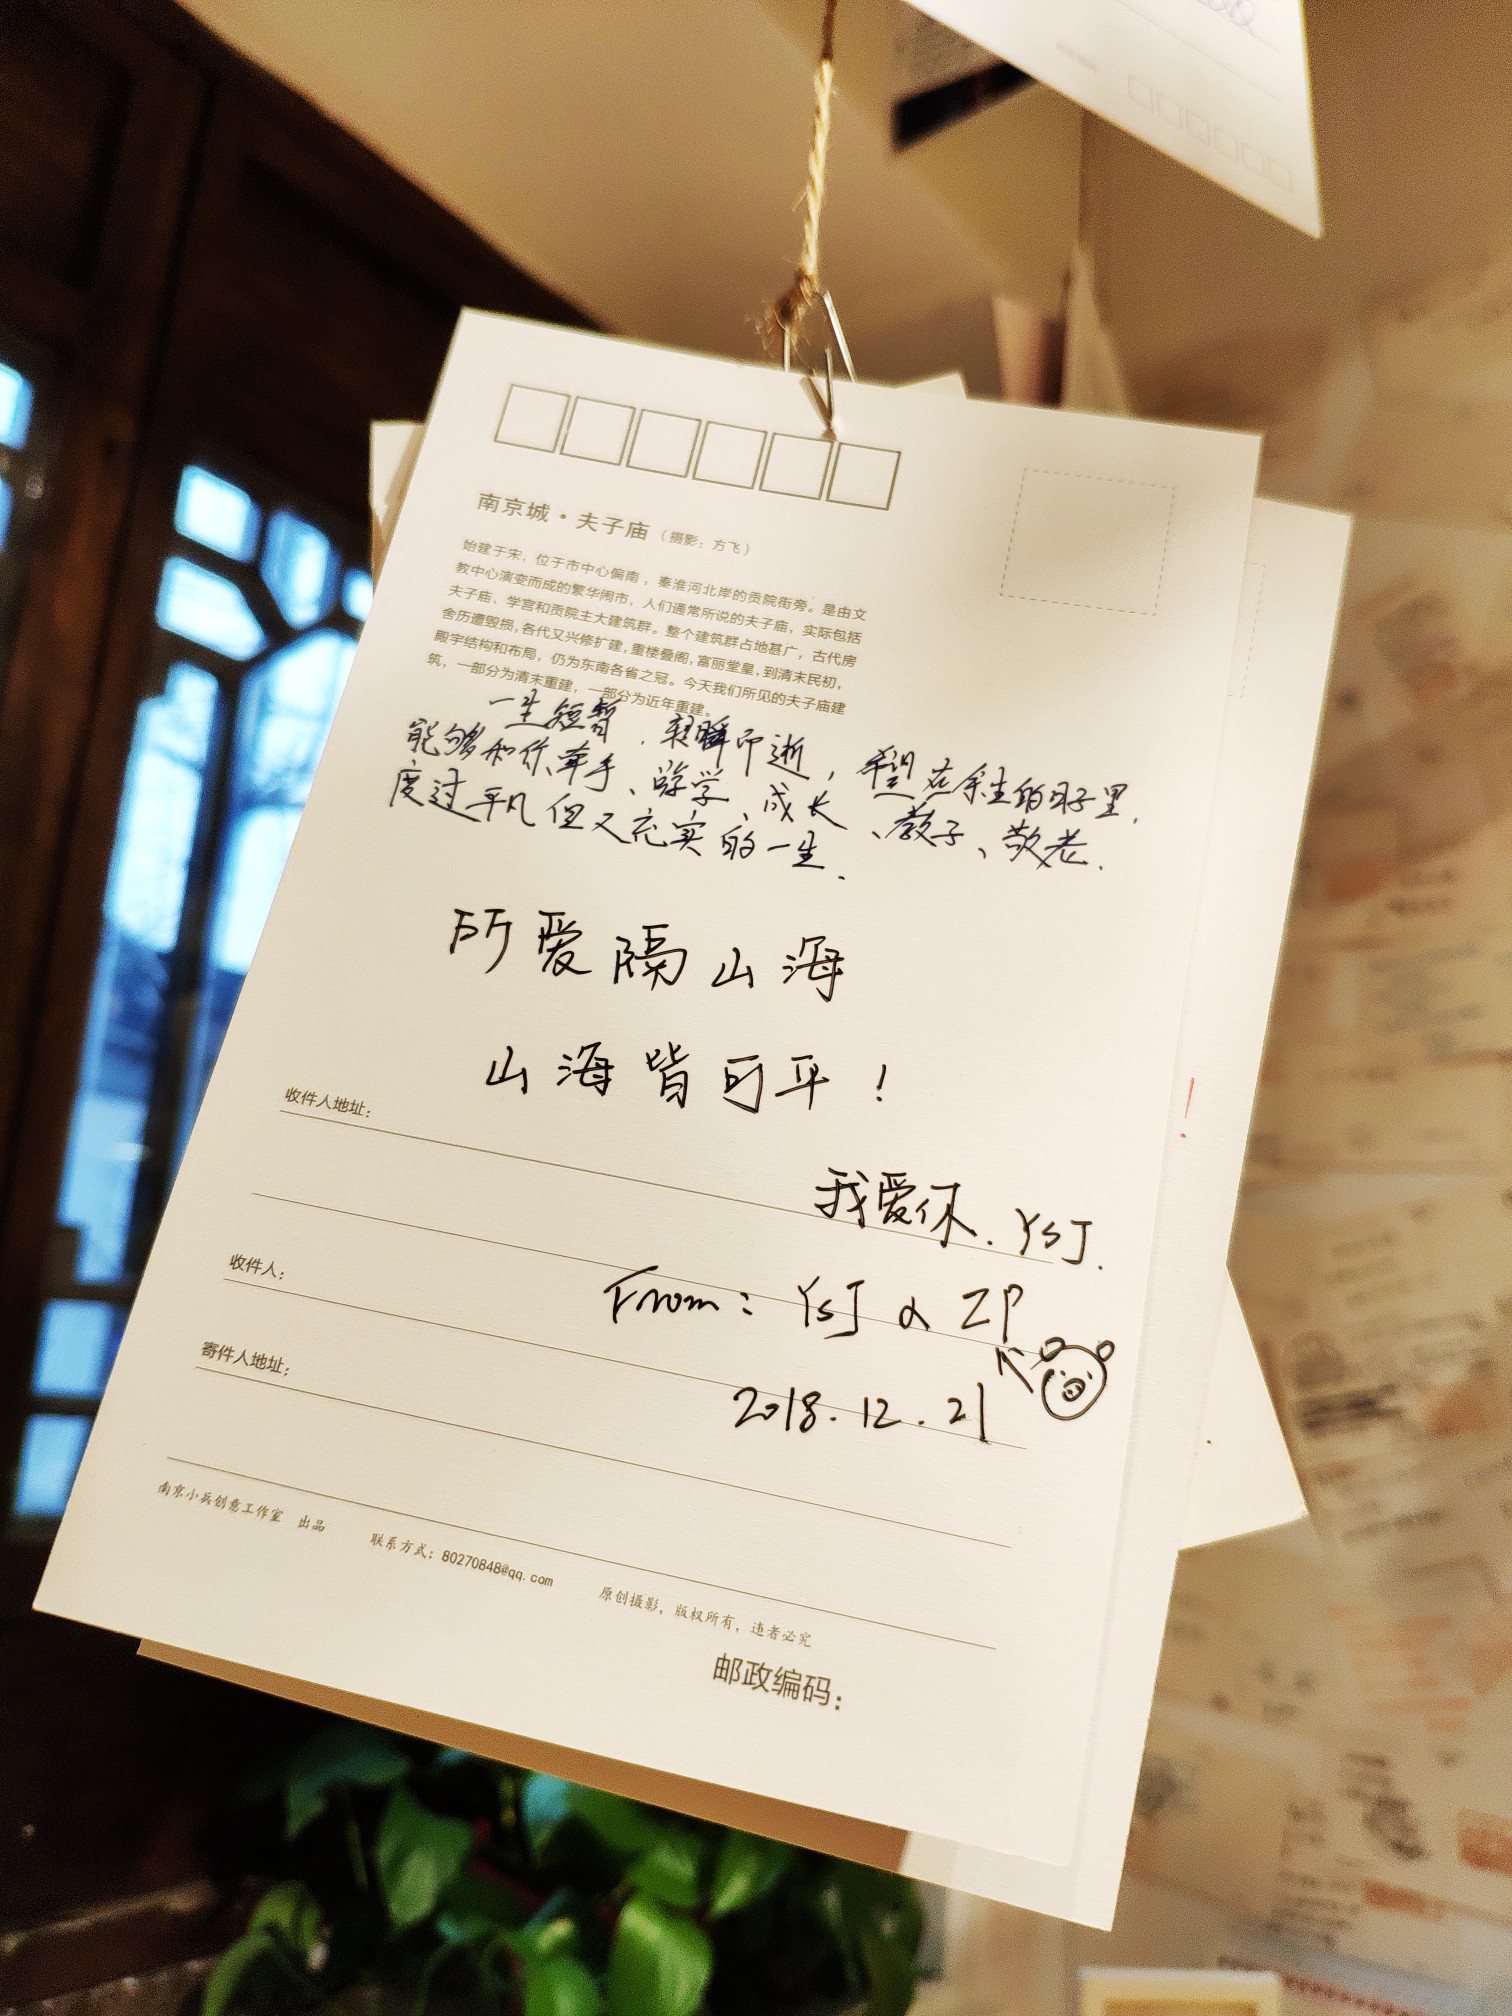 南京城·夫子庙（摄影：方飞）
始建于宋，位于市中心偏南，秦淮河北岸的贡院街旁。是由文
教中心演变而成的繁华闹市，人们通常所说的夫子庙，实际包括
夫子庙、学宫和贡院主大建筑群。整个建筑群占地甚广，古代房
舍历遭毁损，各代又兴修扩建，重楼叠阁，富丽堂皇，到清末民初，
殿宇结构和布局，仍为东南各省之冠。今天我们所见的夫子庙建
筑，一部分为清末重建，一部分为近年重建。
一生短暂，转瞬即逝，希望在余生的日子里，
能够和你牵手、游学、成长、教子、敬老，
度过平凡但又充实的一生.
所爱隔山海
山海皆可平！
收件人地址：
我爱你.YSJ.
收件人：
From：YSJ & ZP
寄件人地址：
2018.12.21
南京小兵创意工作室 出品 联系方式：80270848@qq.com 原创摄影，版权所有，违者必究
邮政编码：